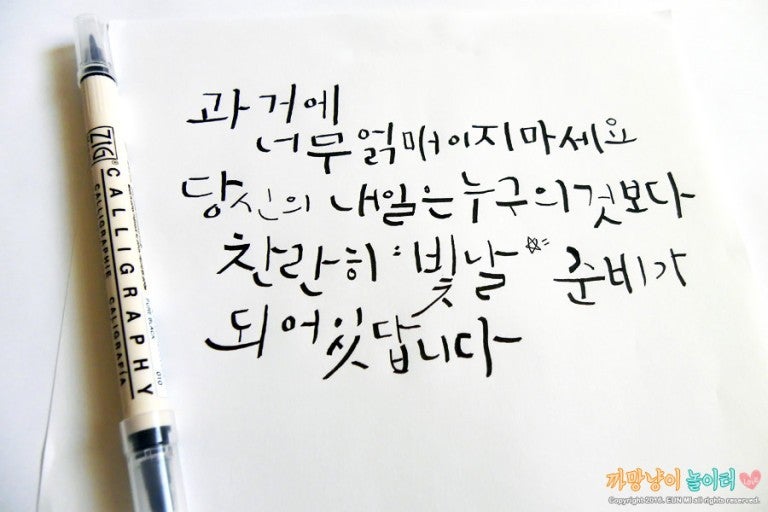 과거에
너무 얽매이지마세요
당신의 내일은 누구의것보다
찬란히 빛날☆ 준비가
되어있답니다
ZIG® CALLIGRAPHY
CALLIGRAPHIE CALIGRAFÍA
PURE BLACK 010
까망냥이 놀이터
Copyright 2016. EUN MI all rights reserved.